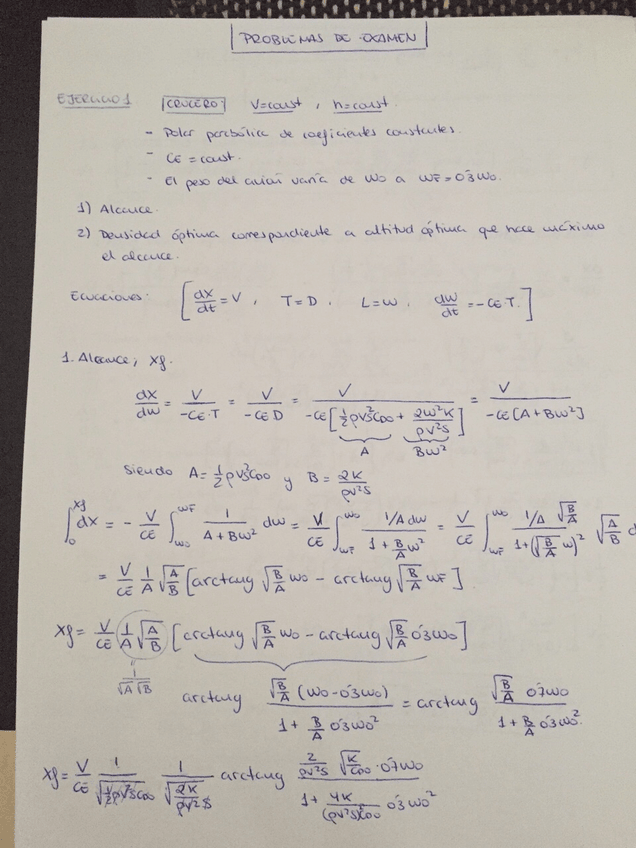 PROBLEMAS DE EXAMEN
EJERCICIO 1 CRUCERO: V=const, h=const.
- Polar parbólica de coeficientes constantes.
- CE = const.
- El peso del avión varía de W0 a WF = 0'3W0.
1) Alcance.
2) Densidad óptima correspondiente a altitud óptima que hace máximo
el alcance.
Ecuaciones: [dx/dt = V, T = D, L = W, dw/dt = -CE T.]
1. Alcance, Xf.
dx/dw = V/(-CE·T) = V/(-CE D) = V/(-CE[½ρV²SCD0 + 2W²K/(ρV²S)]) = V/(-CE[A+BW²])
A BW²
siendo A = ½ρV²SCD0 y B = 2K/(ρV²S)
∫₀^Xf dx = -V/CE ∫_W0^WF 1/(A+BW²) dw = V/CE ∫_WF^W0 (1/A dw)/(1+(B/A)W²) = V/CE ∫_WF^W0 (1/A √(B/A))/(1+(√(B/A) W)²) √(A/B) d
= V/CE 1/A √(A/B) [arctang √(B/A) W0 - arctang √(B/A) WF].
Xf = V/CE 1/A √(A/B) [arctang √(B/A) W0 - arctang √(B/A) 0'3W0]
1/(√A √B)
arctang (√(B/A) (W0-0'3W0))/(1+(B/A) 0'3W0²) = arctang (√(B/A) 0'7W0)/(1+(B/A) 0'3W0²).
Xf = V/CE 1/√(½ρV²SCD0) 1/√(2K/(ρV²S)) arctang (2/(ρV²S) √(K/CD0) · 0'7W0)/(1+4K/((ρV²S)²CD0) 0'3W0²)